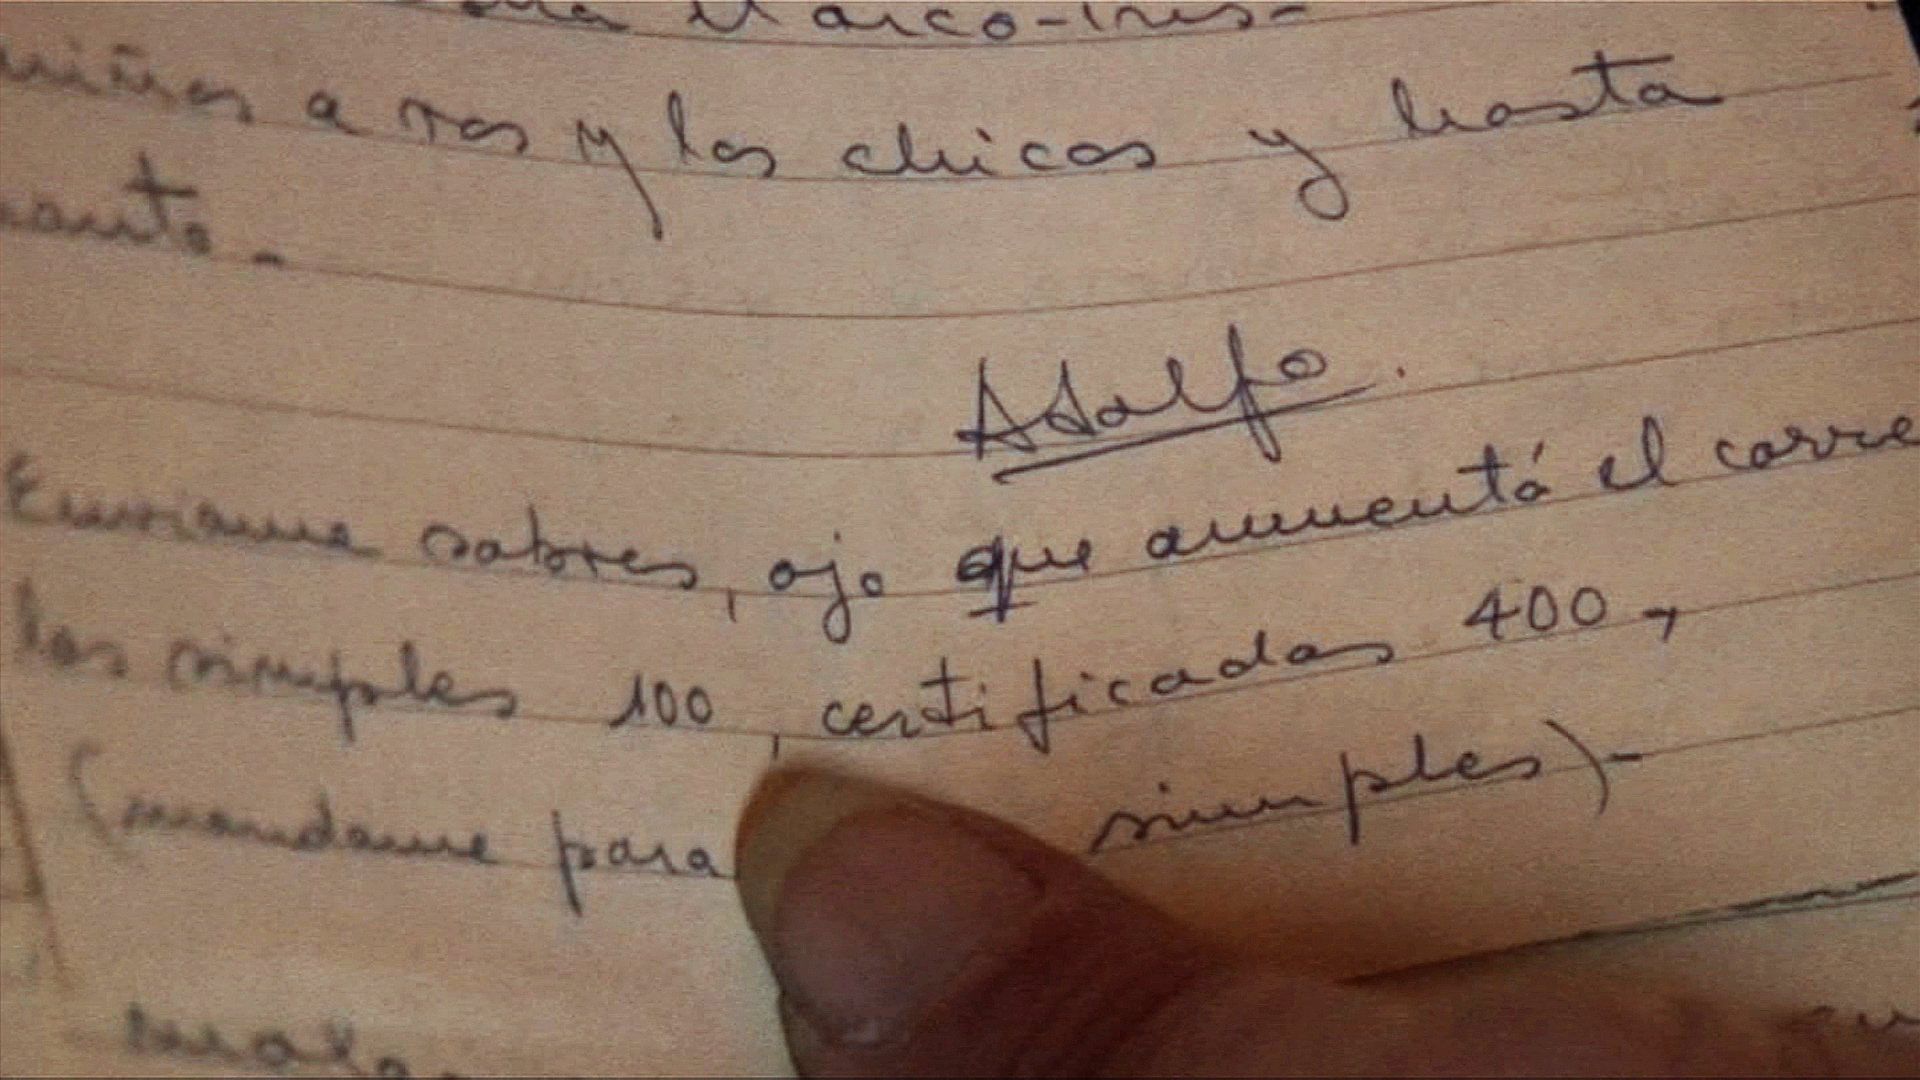 Marco-Inés-
a vos y los chicos y hasta
Adolfo.
Envíame sobres, ojo que aumentó el corre
las simples 100, certificadas 400,
(mandame para simples)-